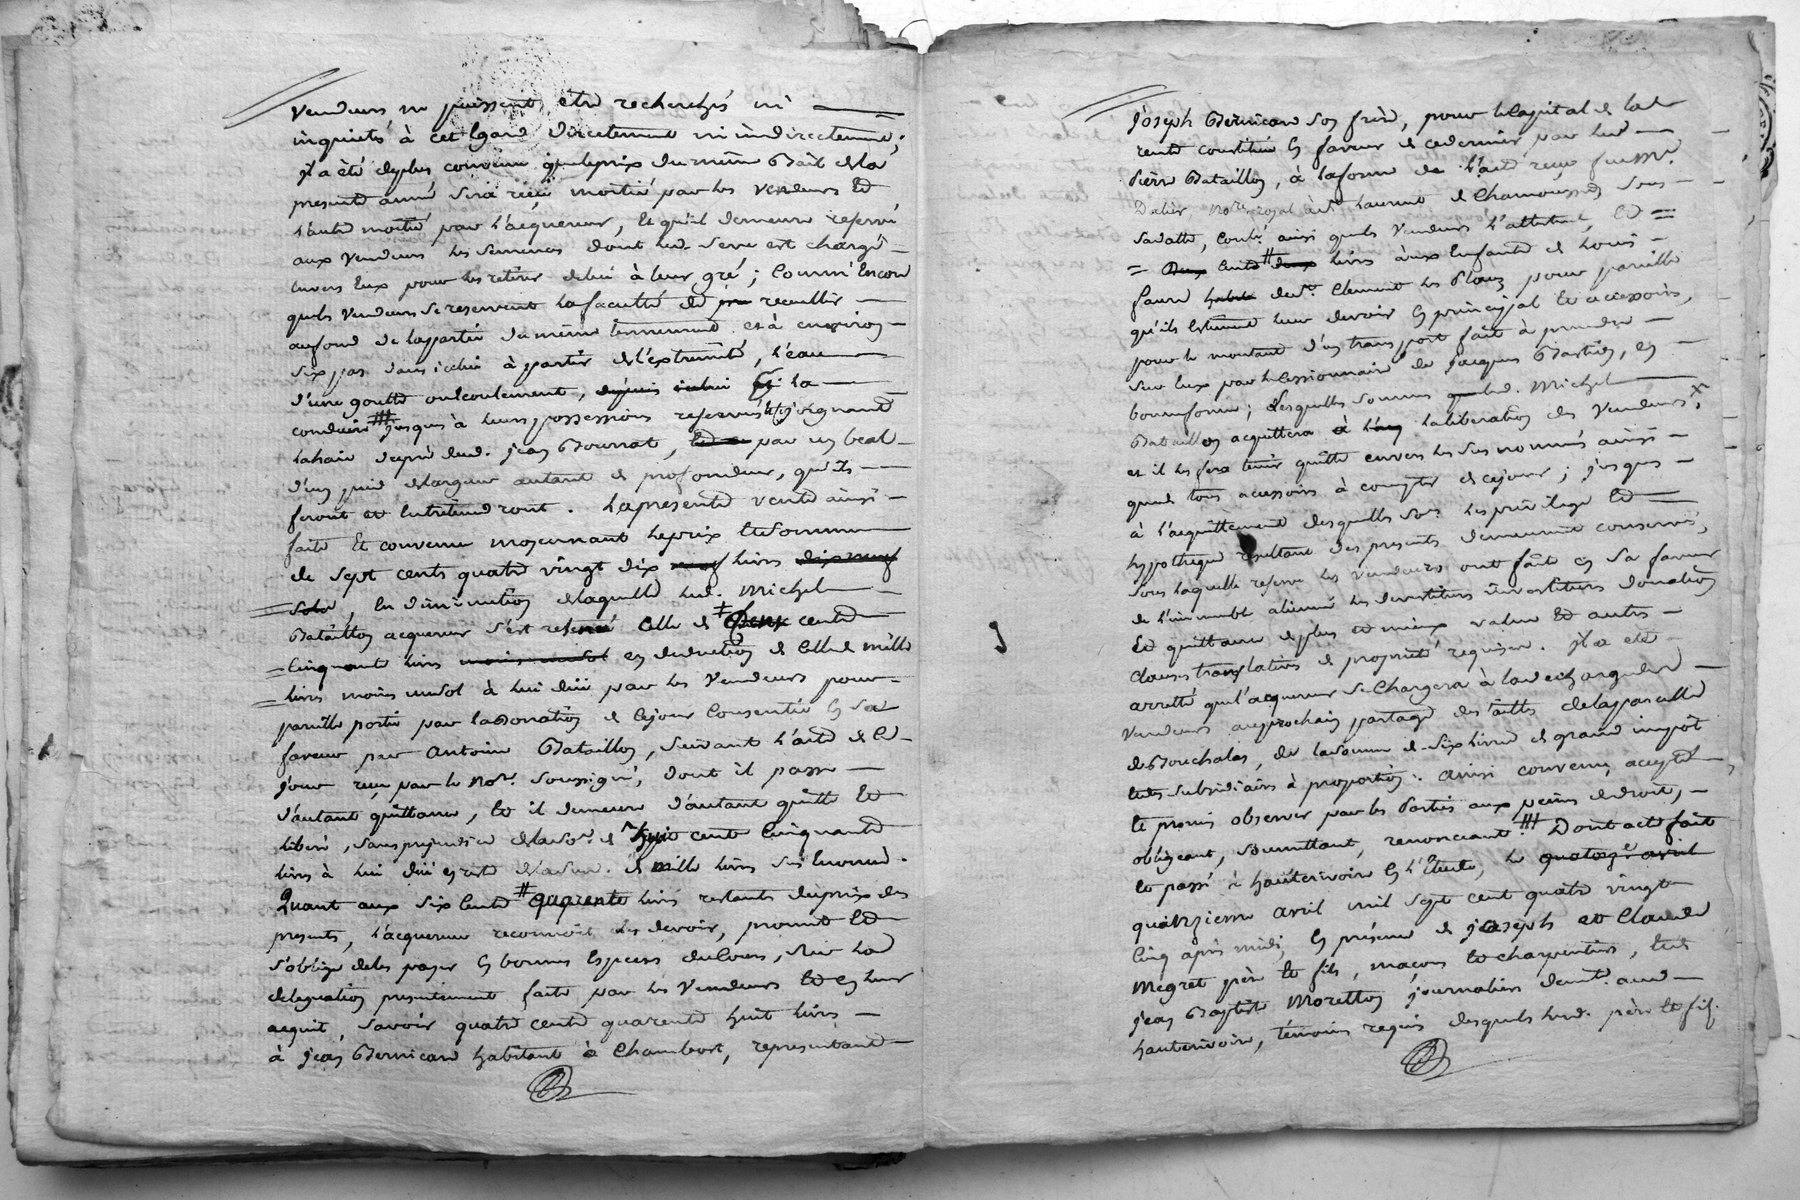 vendeurs ne puissent etre recherchés ni
inquietés à cet Egard directement ni indirectement;
il a été de plus convenu que le prix du même Bail de la
presente année sera reçu moitié par les vendeurs Et
l'autre moitié par l'acquereur, Et qu'il demeure reservé
aux vendeurs les semences dont led. Serre est chargé
envers Eux pour les retirer de lui à leur gré; comm'Encore
que les vendeurs se reservent la faculté de recueillir
au fond de la partie du même tennement et à environ
six pas dans icelui à partir de l'extremité, l'eau
d'une goutte ou lcoulement, depuis icelui Et la
conduire jusques à leurs possessions reservées joignant
la haie depré dud. jean Bournat, par un beal
d'un pied de largeur autant de profondeur, qu'ils
feront et Entretiendront. La presente vente ainsi
faite Et convenue moyennant le prix Et somme
de sept cents quatre vingt dix neuf livres dix neuf
sols, En diminution de laquelle led. Michel
Bataillon acquereur s'est retenu celle de Deux cents
Cinquante livres moins un sol en deduction de Celle de mille
livres moins un sol à lui düe par les vendeurs pour
pareille portée par la donation de ce jour Consentie En sa
faveur par antoine Bataillon, suivant l'acte de ce
jour reçu par le Nore. soussigné, dont il passe
d'autant quittance, Et il demeure d'autant quitte Et
liberé, sans prejudice de la so. de huit cents Cinquante
livres à lui düe en reste de lad. so. de mille livres sus Enoncée.
Quant aux six Cents quarente livres restants du prix des
presents, l'acquereur reconnoit les devoir, promet Et
s'oblige de les payer En bonnes Especes de Cours, sur la
delegation presentement faite par les vendeurs Et en leur
acquit, savoir quatre cents quarente huit livres
à jean Bernicard habitant à Chambost, representant
joseph Bernicard son frere, pour le Capital de la
rente constituée En faveur de ce dernier par led.
Pierre Bataillon, à la forme de l'acte reçu
Dalier, nore. royal à St. Laurent de Chamousset, sous
sa datte, Conté ainsi que les vendeurs l'attestent, Et
Deux Cents deux livres aux Enfants de Louis
faure habits de St. Clement les Places pour pareille
qu'ils Estiment leur devoir En principal Et accessoirs,
pour le montant d'un transport fait à prendre
sur Eux par le Cessionnaire de jacques Bastien, en
bonne forme; desquelles sommes led. Michel
Bataillon acquittera à la liberation des vendeurs,
et il les fera tenir quitte envers les sus nommés ainsi
que de tous accessoirs à compter de ce jour; jusques
à l'acquittement desquelles so. les privilege Et
hypotheque resultant des presents demeurent conservés,
sous laquelle reserve les vendeurs ont fait en sa faveur
de l'immeuble aliené les devestitures investitures donation
Et quittance de plus Et mieux value Et autres
clauses translatives de proprieté requises. il a eté
arretté que l'acquereur se Chargera à la decharge des
vendeurs au prochain partage des tailles de la parcelle
de Bouchalas, de la somme de six livres de grand impôt
Et des subsidiaires à proportion. ainsi convenu, accepté
Et promis observer par les Parties aux peines de droit,
obligeant, soumettant, renonceant Dont acte fait
Et passé à hauterivoire En l'Etude, le quatorze avril
quinzieme avril mil sept cent quatre vingt
Cinq après midi, En présence de joseph et Claude
Megret père Et fils, maçons Et charpentiers, Et de
jean Baptiste Moretton journalier demt. aud.
hauterivoire, témoins requis desquels led. père Et fils.